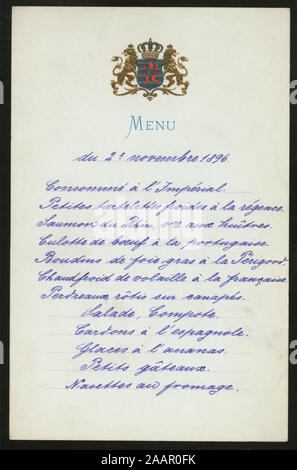 MENU
du 2t novembre 1896.
Consommé à l'Impérial.
Petites tartelettes froides à la régence.
Saumon du Rhin, sce aux huîtres.
Culotte de bœuf à la portugaise.
Boudins de foie gras à la Périgord.
Chaudfroid de volaille à la française.
Perdreaux rôtis sur canapés.
Salade, Compote.
Cardons à l'espagnole.
Glaces à l'ananas.
Petits gâteaux.
Navettes au fromage.
alamy
Image ID: 2AAR0FK
www.alamy.com